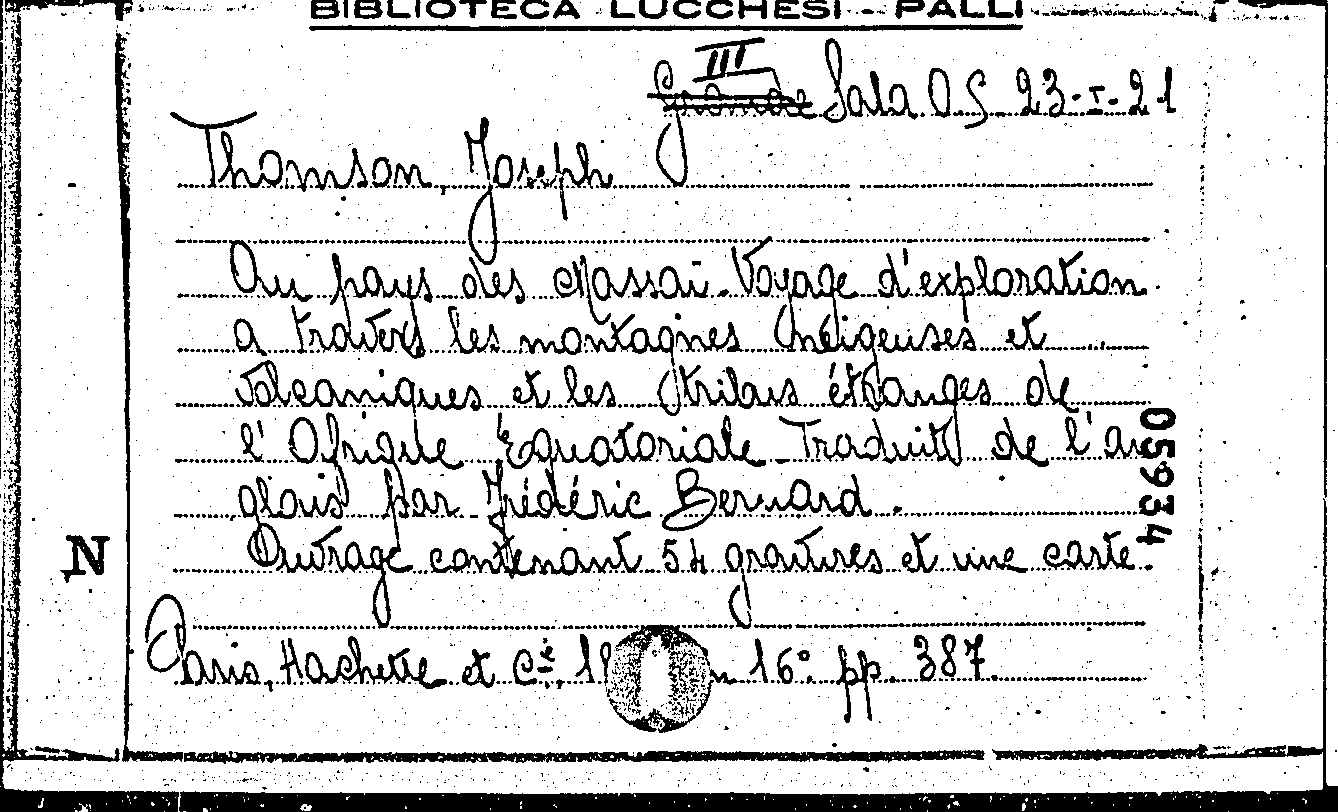 BIBLIOTECA LUCCHESI - PALLI
III
Sala O S 23-I-21
Thomson, Joseph
Au pays des Massaï - Voyage d'exploration
a travers les montagnes et
volcaniques et les tribus étranges de
l'Afrique Equatoriale - Traduit de l'an
glais par Frédéric Bernard.
Ouvrage contenant 54 gravures et une carte.
Paris, Hachette et C.ie, 18 16° pp. 387.
05934
N